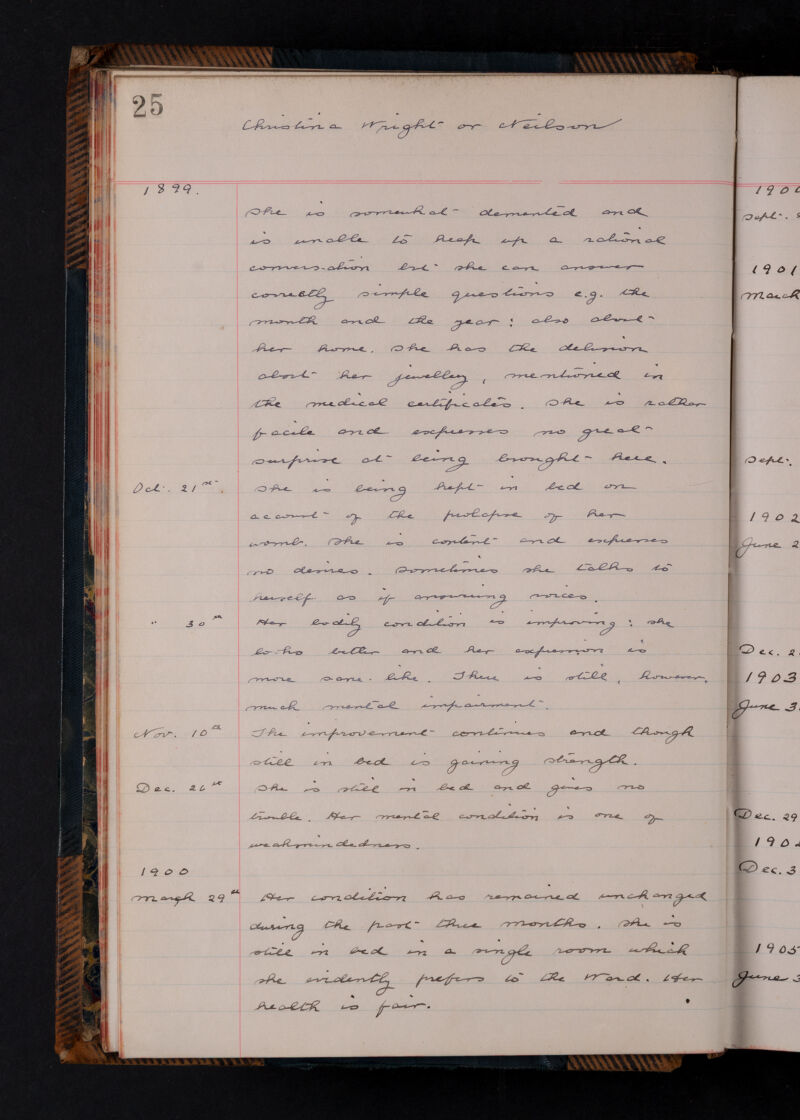 25
Christina Wright or Neilson
1899.
She is somewhat demented and
is unable to keep up a rational
conversation but she can answer
correctly simple questions e.g. the
month and the year; also about
her home. She has the delusion
about her jewellery, mentioned in
the medical certificates. She is rather
facile and expresses no great
surprise at being brought here.
Oct. 21st. She is being kept in bed on
account of the prolapse of her
womb. She is content and expresses
no desires. Sometimes she talks to
herself as if answering voices.
" 30th Her bodily condition is improving; she
looks better and her expression is
more sane-like. There is still, however,
much mental impairment.
Nov. 10th The improvement continues and though
still in bed is gaining strength.
Dec. 26th She is still in bed and gives no
trouble. Her mental condition is one of
weakmindedness.
1900
March 29th Her condition has remained unchanged
during the past three months. She is
still in bed in a single room which
she evidently prefers to the Ward. Her
health is fair.
190
Sept.
1901
March
Sept.
1902
June 2
Dec. 2
1903
June 3
Dec. 29
190
Dec. 3
1905
June 3